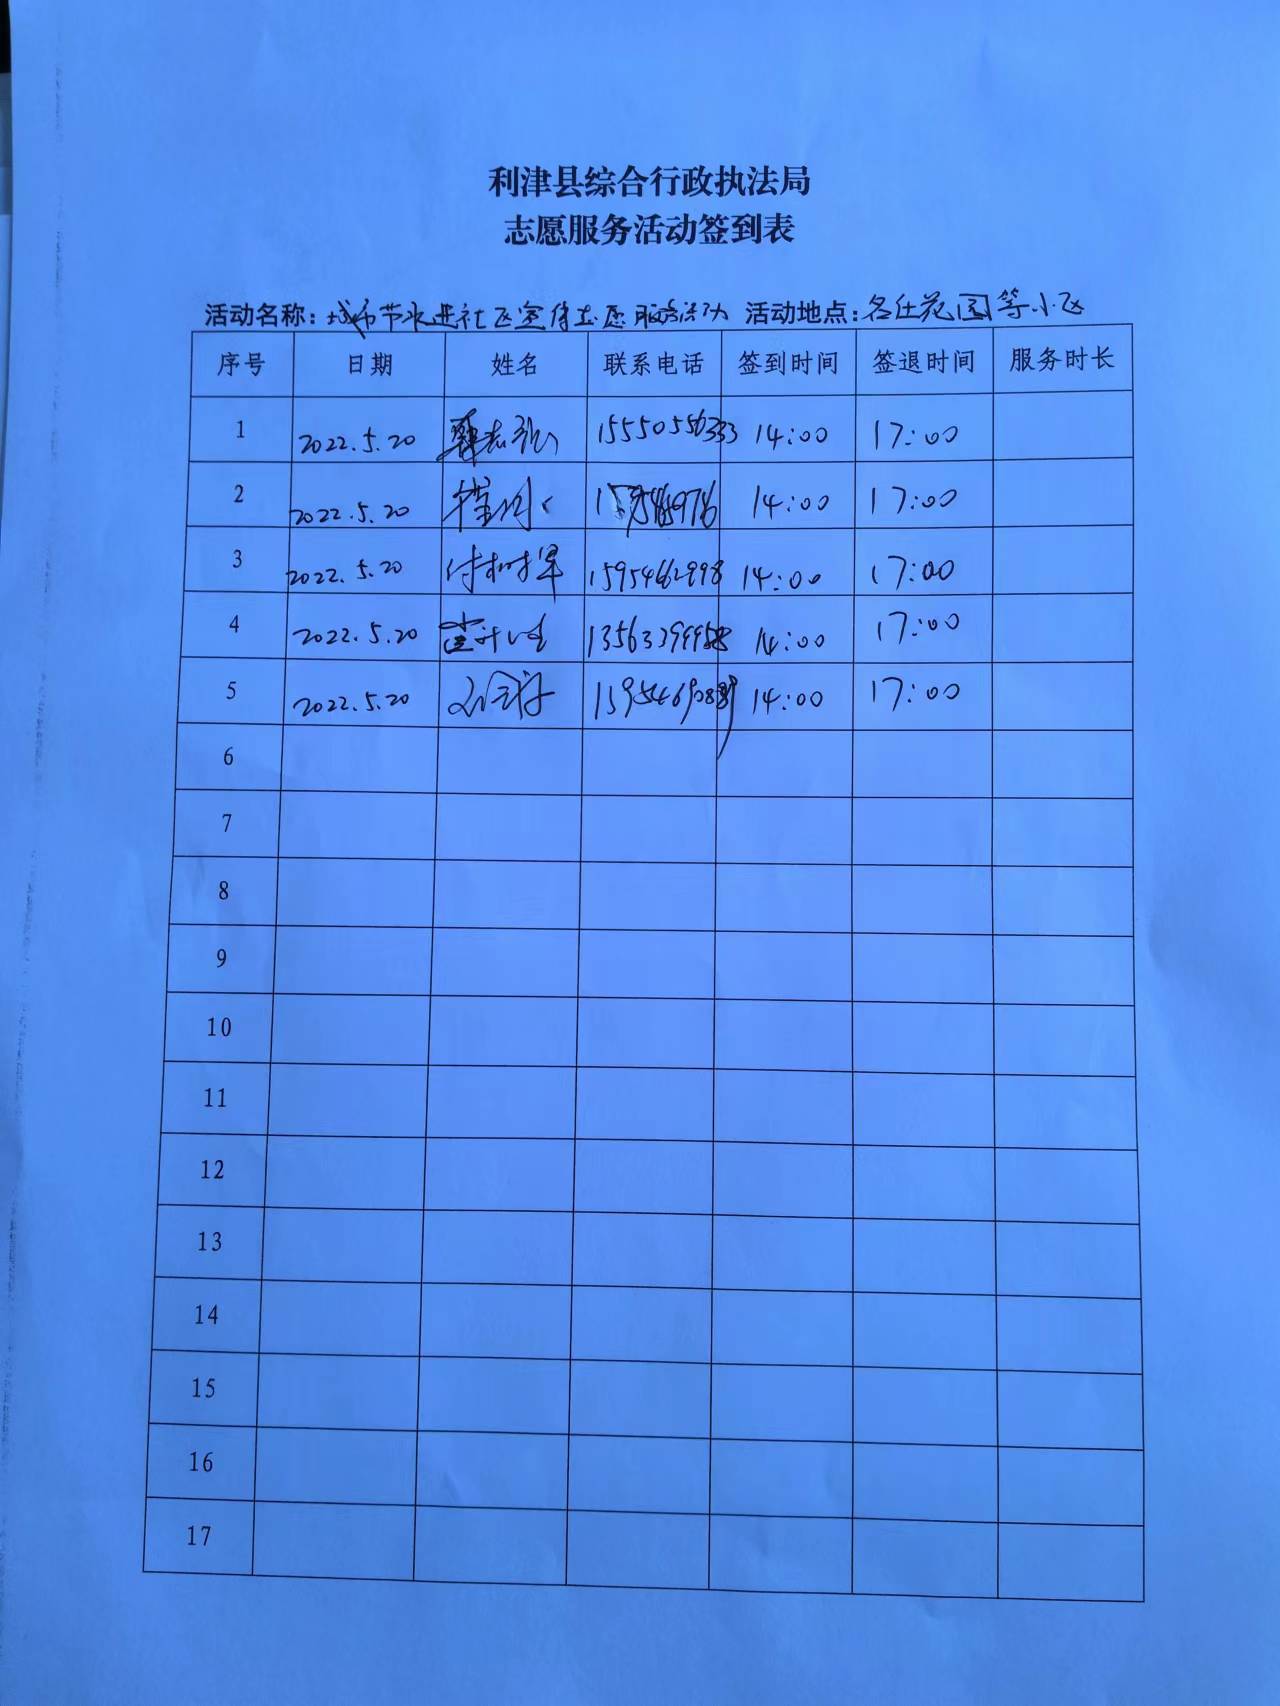 利津县综合行政执法局
志愿服务活动签到表
活动名称：城市节水进社区宣传志愿服务活动 活动地点：名仕花园等小区
序号 日期 姓名 联系电话 签到时间 签退时间 服务时长
1 2022.5.20 15550556333 14:00 17:00
2 2022.5.20 14:00 17:00
3 2022.5.20 14:00 17:00
4 2022.5.20 14:00 17:00
5 2022.5.20 14:00 17:00
6
7
8
9
10
11
12
13
14
15
16
17